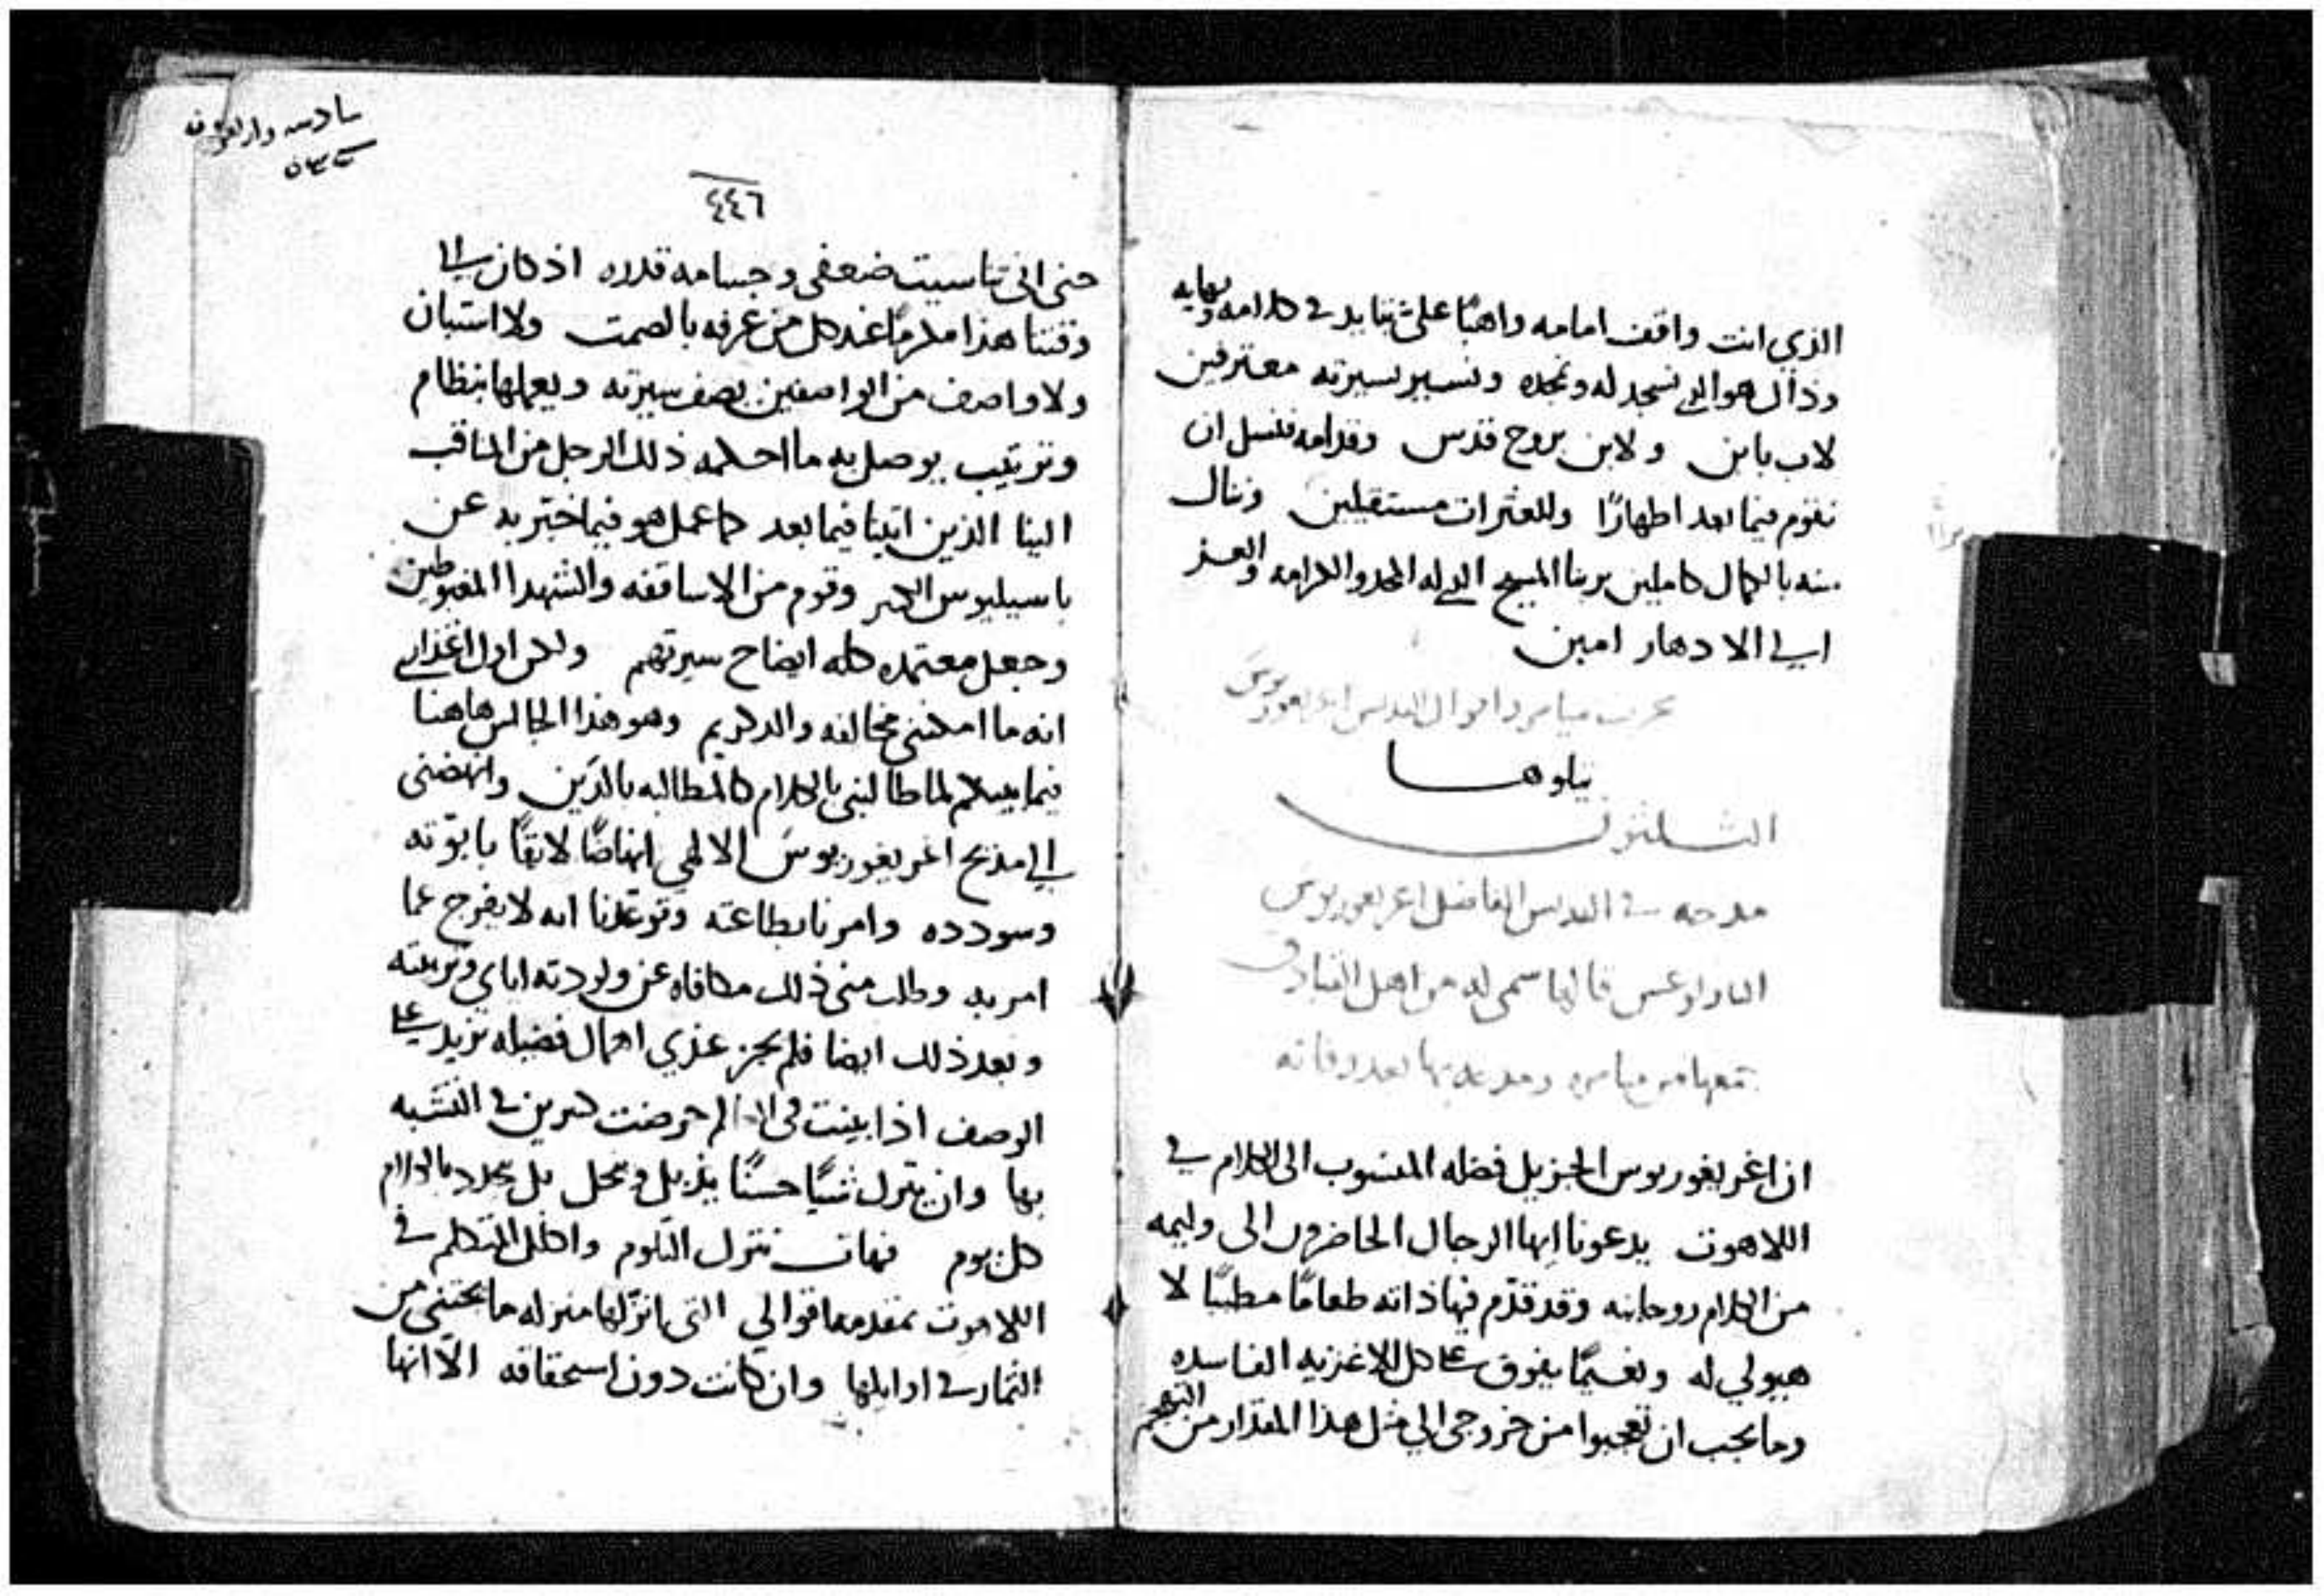 الذي انت واقف امامه واهبًا على ثنا يد في كلامه ونهايه
وذاك هو الذي نسجد له ونمجده ونسير بسيرته معترفين
لاب بابن ولابن بروح قدس وقدامه فنسل ان
نقوم فيما بعد اطهارًا وللعثرات مستقيلين وننال
منه بالكمال كاملين بربنا المسيح الذي له المجد والكرامه والعز
الي الادهار امين
ميامر واقوال القديس اغريغوريوس
يتلوهـــا
الثـــلثون
مدحه في القديس الفاضل اغريغوريوس
الثاولوغس قالها سمي له من اهل القبادق
ميامره ومدحه بها بعد وفاته
ان اغريغوريوس الجزيل فضله المنسوب الى الكلام في
اللاهوت يدعونا ايها الرجال الحاضرون الى وليمه
من الكلام روحانيه وقد قدّم فيها ذاته طعامًا مطيبًا لا
هيولي له ونعيمًا يفوق على كل الاغذيه الفاسده
وما يجب ان تعجبوا من خروجي الي مثل هذا المقدار من التهجم
سادسه واربعون
٤٤٦
حتى اني تناسيت ضعفي وجسامه قدره اذ كان الى
وقتنا هذا مكرمًا عند كل من عرفه بالصمت ولا استبان
ولا واصف من الواصفين يصف سيرته ويعملها بنظام
وترتيب يوصل به ما احكمه ذلك الرجل من المناقب
الينا الذين اتينا فيما بعد كما عمل هو فيما خبّر به عن
باسيليوس الكبير وقوم من الاساقفه والشهدا المغبوطين
وجعل معتمده كله ايضاح سيرتهم ولكن اول اعذاري
انه ما امكنني مخالفه والد كريم وهو هذا الجالس هاهنا
فيما بينكم لما طالبني بالكلام كالمطالبه بالدّين وانهضني
الي مديح اغريغوريوس الالهي انهاضًا لائقًا بابوّته
وسودده وامرنا بطاعته وتوعّدنا انه لا يفرج عما
امر به وطلب مني ذلك مكافاه عن ولودته اياي وتربيته
وبعد ذلك ايضا فلم يجز عندي اهمال فضيله تزيد على
الوصف اذا بينت حرضت كثيرين في التشبه
بها وان يترك شيًا حسنًا يذبل ويمحل بل يجدد بالكلام
كل يوم فهات نترك التلوم واكلل المتكلم في
اللاهوت بمقدمه اقوالي التي انزلها منزله ما يجتنى من
الثمار في اوايلها وان كانت دون استحقاقه الّا انها